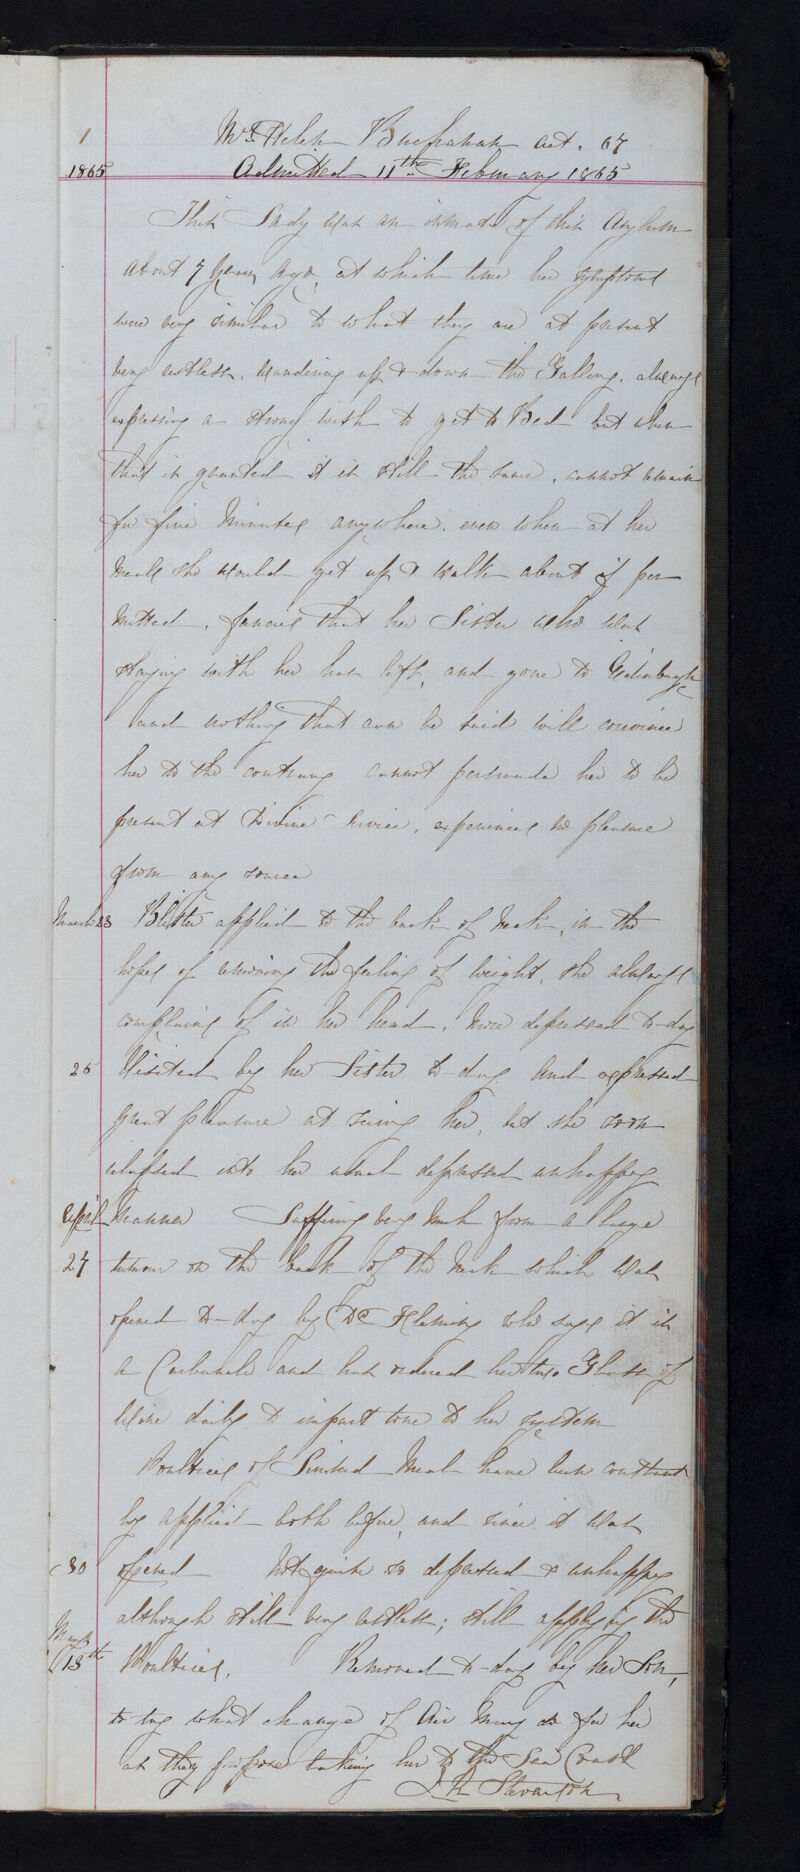 1 Mrs Helen Buchanan aet. 67
1865 Admitted 11th February 1865
This Lady was an inmate of this Asylum
about 7 years ago, at which time her symptoms
were very similar to what they are at present
very restless, wandering up & down the Gallery, always
expressing a strong wish to get to Bed but when
that is granted it is still the same, cannot remain
for five minutes anywhere. even when at her
meals she would get up & walk about if per
mitted, fancies that her Sister who was
staying with her has left, and gone to Edinburgh
and nothing that can be said will convince
her to the contrary cannot persuade her to be
present at Divine Service, experiences no pleasure
from any source
March 23 Blister applied to the back of Neck, in the
hopes of removing the feeling of weight, she always
complains of in her head. More depressed to-day
25 Visited by her Sister to-day and expressed
great pleasure at seeing her, but she soon
relapsed into her usual depressed unhappy
April manner Suffering very much from a large
27 tumour on the back of the Neck which was
opened to-day by Dr Fleming who says it is
a Carbuncle and has ordered her two Glasses of
Wine daily to impart tone to her system
Poultices of Linseed Meal have been constant
ly applied both before, and since it was
30 opened Not quite so depressed & unhappy
although still very restless; still applying the
May
13th Poultices. Removed to-day by her Son,
to try what change of Air may do for her
as they propose taking her to the Sea Coast